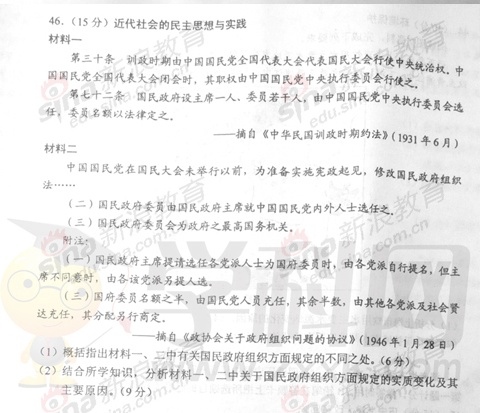 46.（15 分）近代社会的民主思想与实践
材料一
第三十条 训政时期由中国国民党全国代表大会代表国民大会行使中央统治权。中
国国民党全国代表大会闭会时，其职权由中国国民党中央执行委员会行使之。
第七十二条 国民政府设主席一人、委员若干人，由中国国民党中央执行委员会选
任，委员名额以法律定之。
——摘自《中华民国训政时期约法》（1931 年 6 月）
材料二
中国国民党在国民大会未举行以前，为准备实施宪政起见，修改国民政府组织
法……
（二）国民政府委员由国民政府主席就中国国民党内外人士选任之。
（三）国民政府委员会为政府之最高国务机关。
附注：
（一）国民政府主席提请选任各党派人士为国府委员时，由各党派自行提名，但主
席不同意时，由各该党派另提人选。
（三）国府委员名额之半，由国民党人员充任，其余半数，由其他各党派及社会贤
达充任，其分配另行商定。
——摘自《政协会关于政府组织问题的协议》（1946 年 1 月 28 日）
（1）概括指出材料一、二中有关国民政府组织方面规定的不同之处。（6 分）
（2）结合所学知识，分析材料一、二中关于国民政府组织方面规定的实质变化及其
主要原因。（9 分）